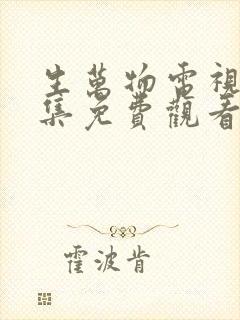 生萬物電視
集免費觀看
霍波肯